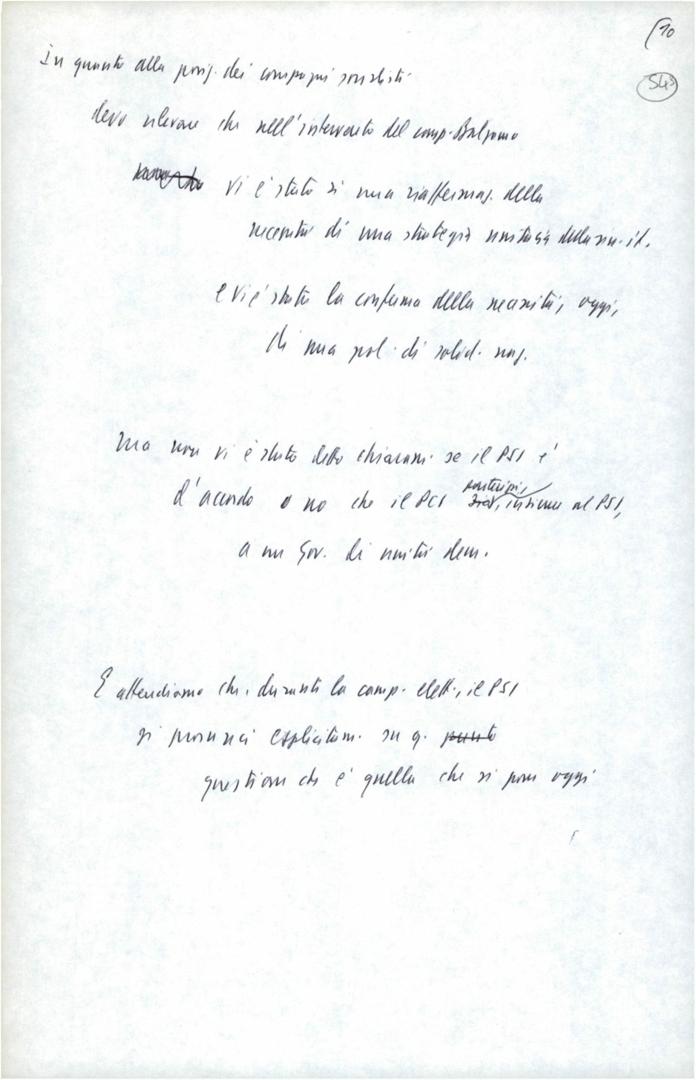 10
54
In quanto alla posiz. dei compagni socialisti
devo rilevare che nell'intervento del comp. Balzamo
vi è stata sì una riaffermaz. della
necessità di una strategia unitaria della sin. it.
e vi è stata la conferma della necessità, oggi,
di una pol. di solid. naz.
Ma non vi è stato detto chiaram. se il PSI è
d'accordo o no che il PCI partecipi, insieme al PSI,
a un Gov. di unità dem.
E attendiamo che, durante la camp. elett., il PSI
si pronunci esplicitam. su q. punto
questione che è quella che si pone oggi